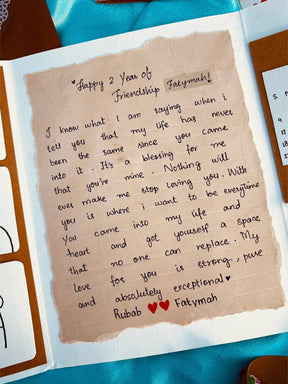 Happy 2 Year of
Friendship Fatymah!
I know what I am saying when i
tell you that my life has never
been the same since you came
into it. It's a blessing for me
that you're mine. Nothing will
ever make me stop loving you. With
you is where i want to be everytime
You came into my life and
heart and got yourself a space
that no one can replace. My
love for you is strong, pure
and absolutely exceptional♥
Rubab ♥♥ Fatymah